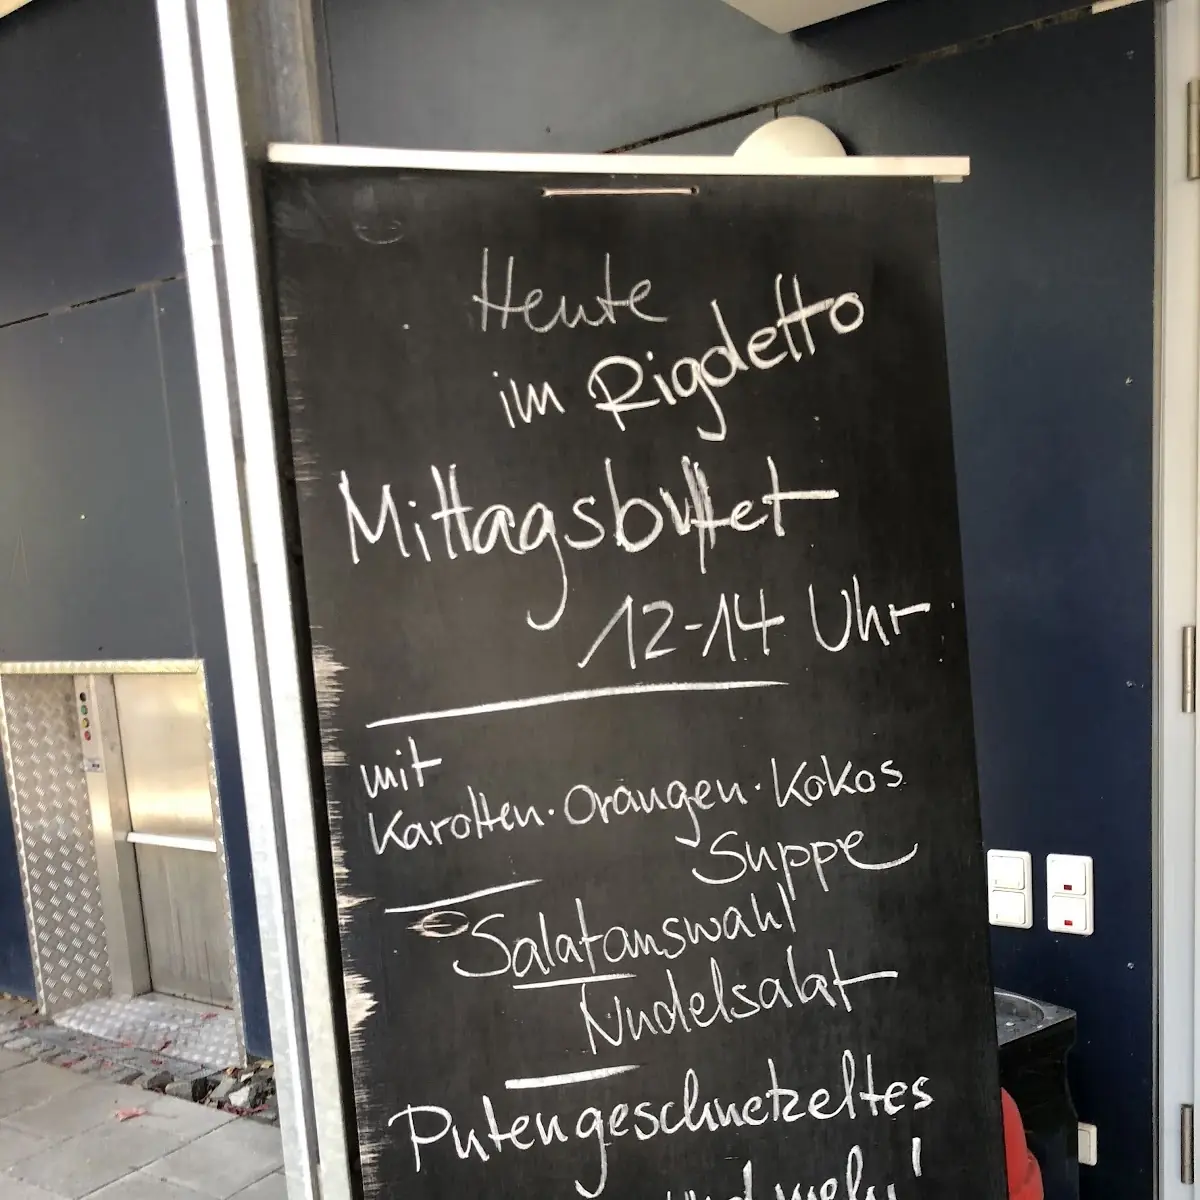 Heute
im Rigoletto
Mittagsbuffet
12-14 Uhr
mit
Karotten·Orangen·Kokos
Suppe
Salatauswahl
Nudelsalat
Putengeschnetzeltes
und mehr!